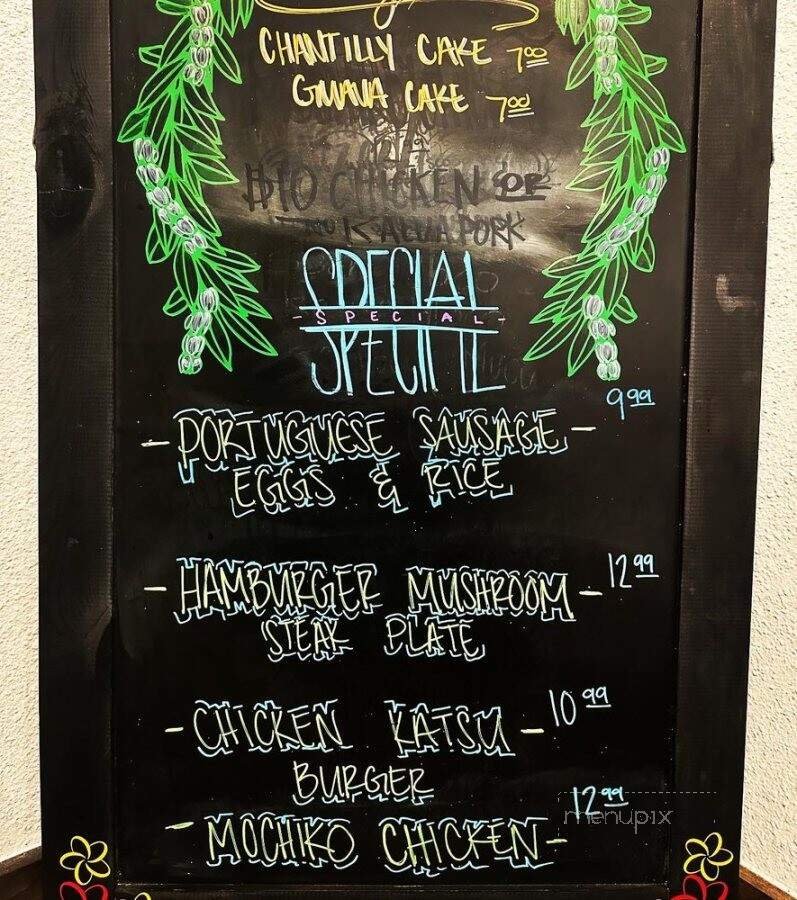 CHANTILLY CAKE 7.00
GUAVA CAKE 7.00
$10 CHICKEN OR
KALUA PORK
SPECIAL
SPECIAL
- PORTUGUESE SAUSAGE - 9.99
EGGS & RICE
- HAMBURGER MUSHROOM - 12.99
STEAK PLATE
- CHICKEN KATSU - 10.99
BURGER
12.99
menupix
- MOCHIKO CHICKEN -